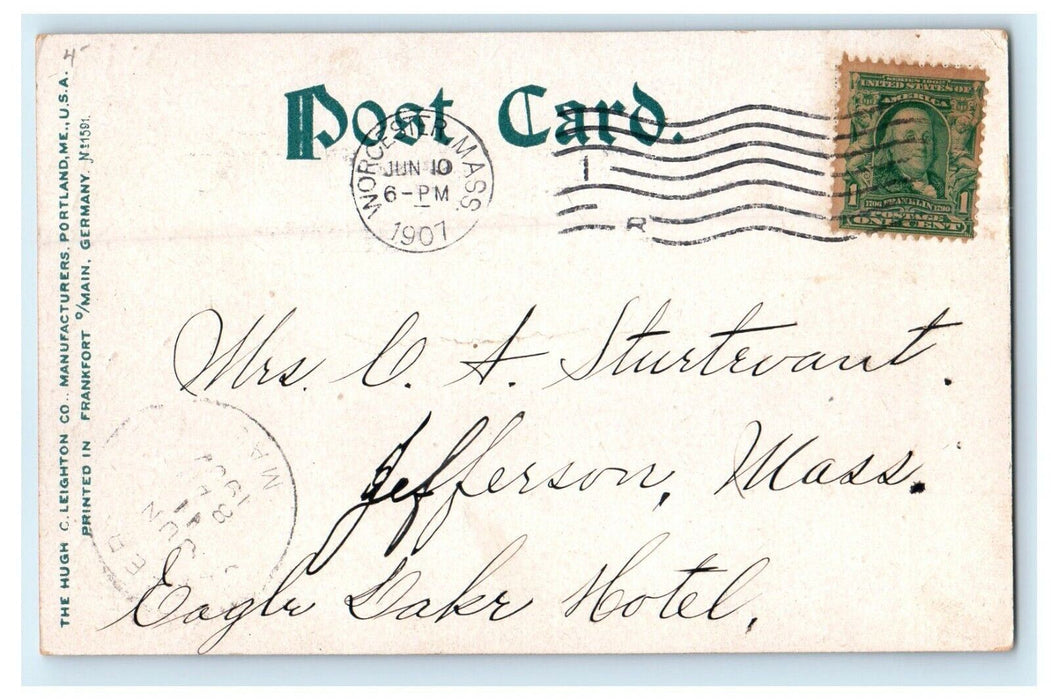 Post Card.
WORCESTER, MASS.
JUN 10
6-PM
1907
1
R
SERIES 1902
UNITED STATES OF
AMERICA
1 1706 FRANKLIN 1790 1
POSTAGE
ONE CENT
THE HUGH C. LEIGHTON CO., MANUFACTURERS, PORTLAND, ME., U.S.A.
PRINTED IN FRANKFORT o/MAIN, GERMANY. № 1591.
Mrs. C. A. Sturtevant.
Jefferson, Mass.
Eagle Lake Hotel.